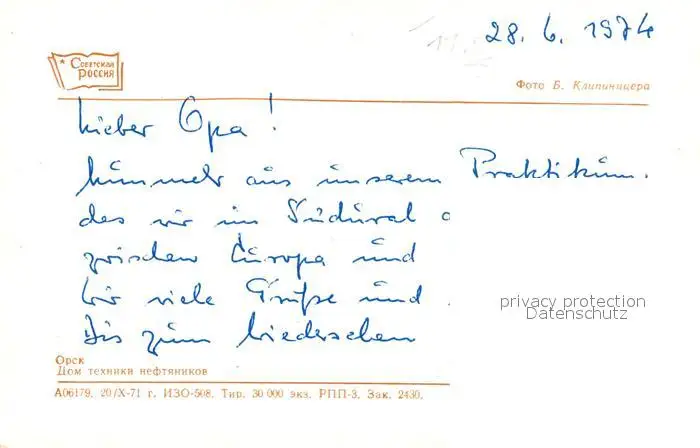 28. 6. 1974
Советская
россия
Фото Б. Клипиницера
Lieber Opa!
Nunmehr aus unserem Praktikum.
das wir im Südural
zwischen Europa und
Dir viele Grüße und
Bis zum Wiedersehen
privacy protection
Datenschutz
Орск
Дом техники нефтяников
А06179. 20/X-71 г. ИЗО-508. Тир. 30 000 экз. РПП-3. Зак. 2430.